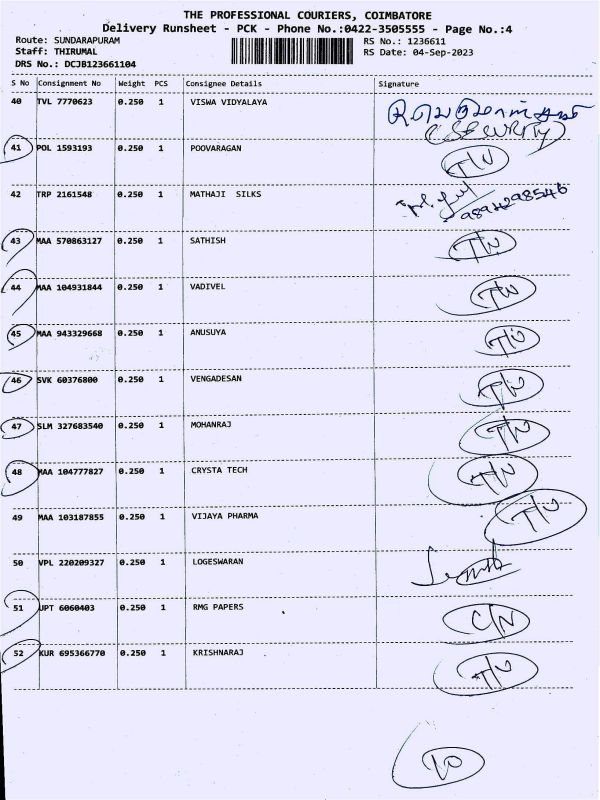 THE PROFESSIONAL COURIERS, COIMBATORE
Delivery Runsheet - PCK - Phone No.:0422-3505555 - Page No.:4
Route: SUNDARAPURAM RS No.: 1236611
Staff: THIRUMAL RS Date: 04-Sep-2023
DRS No.: DCJB123661104
S No Consignment No Weight PCS Consignee Details Signature
40 TVL 7770623 0.250 1 VISWA VIDYALAYA
(SECURITY)
41 POL 1593193 0.250 1 POOVARAGAN T/N
42 TRP 2161548 0.250 1 MATHAJI SILKS
43 MAA 570863127 0.250 1 SATHISH T/N
44 MAA 104931844 0.250 1 VADIVEL T/N
45 MAA 943329668 0.250 1 ANUSUYA T/N
46 SVK 60376800 0.250 1 VENGADESAN T/N
47 SLM 327683540 0.250 1 MOHANRAJ T/N
48 MAA 104777827 0.250 1 CRYSTA TECH T/N
49 MAA 103187855 0.250 1 VIJAYA PHARMA T/N
50 VPL 220209327 0.250 1 LOGESWARAN
51 UPT 6060403 0.250 1 RMG PAPERS C/N
52 KUR 695366770 0.250 1 KRISHNARAJ T/N
10